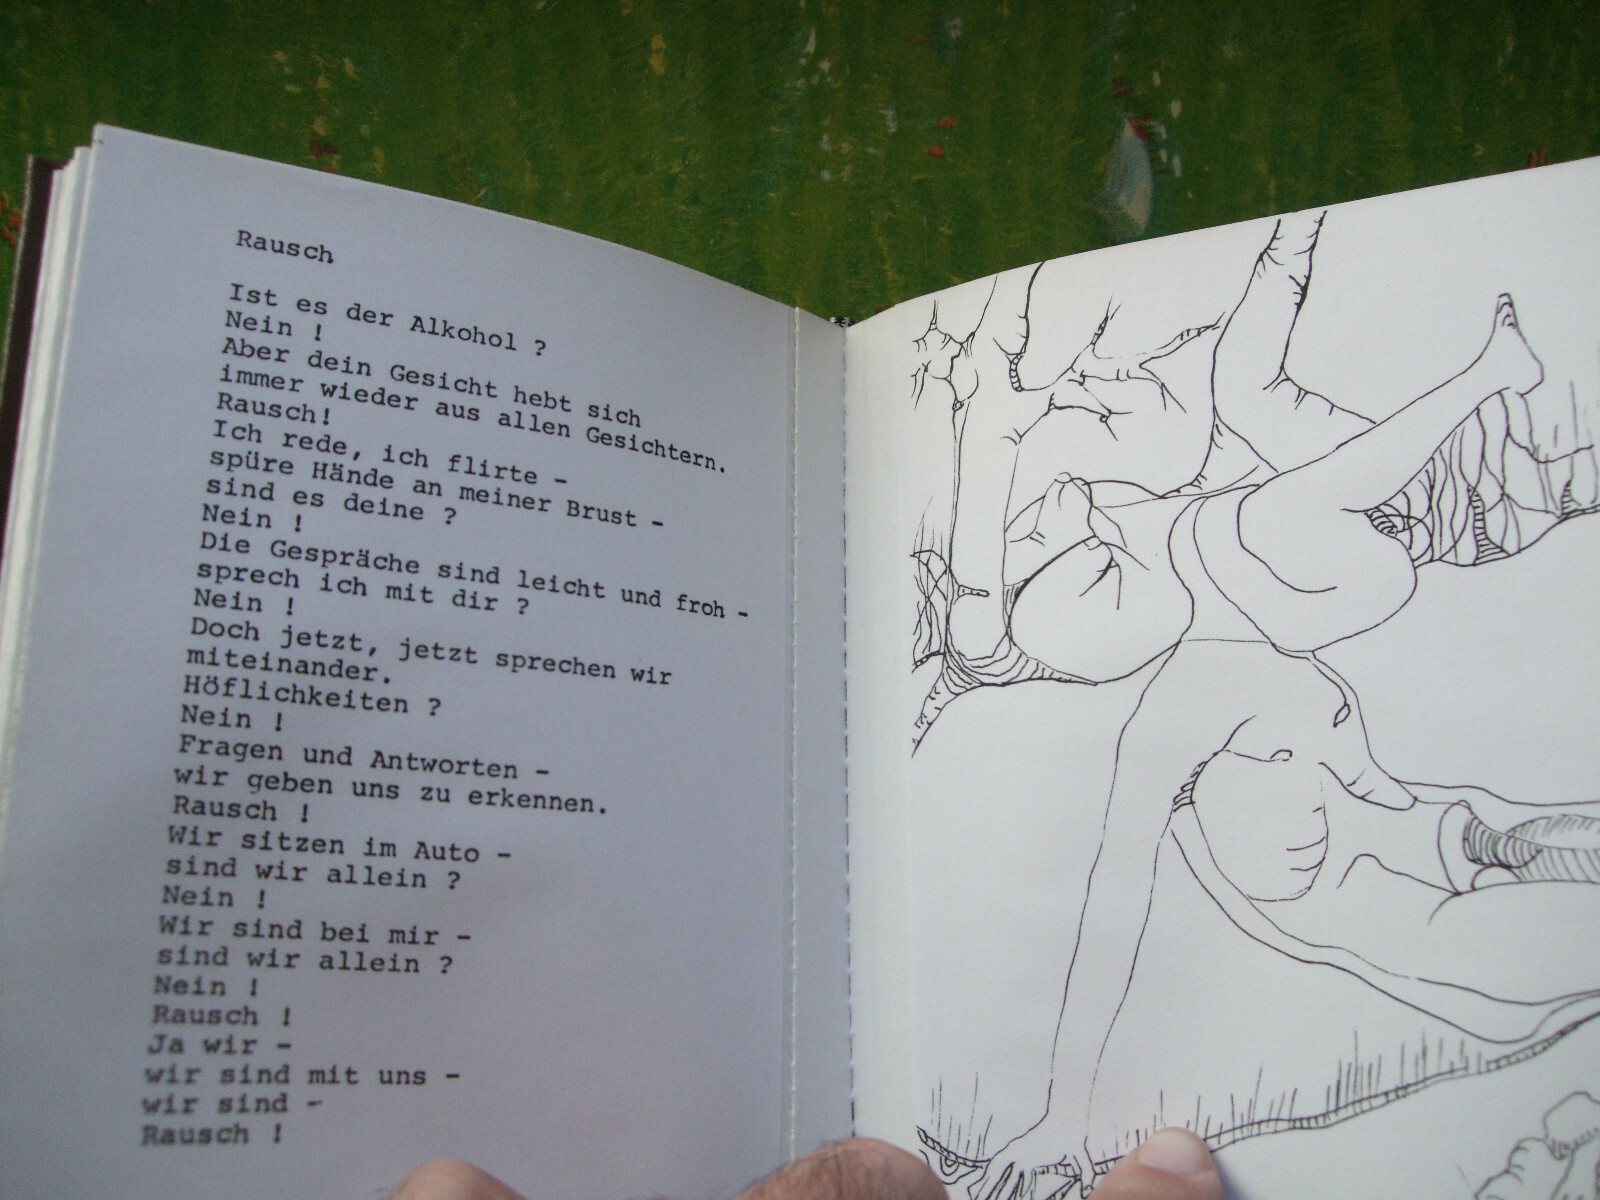 Rausch
Ist es der Alkohol ?
Nein !
Aber dein Gesicht hebt sich
immer wieder aus allen Gesichtern.
Rausch!
Ich rede, ich flirte -
spüre Hände an meiner Brust -
sind es deine ?
Nein !
Die Gespräche sind leicht und froh -
sprech ich mit dir ?
Nein !
Doch jetzt, jetzt sprechen wir
miteinander.
Höflichkeiten ?
Nein !
Fragen und Antworten -
wir geben uns zu erkennen.
Rausch !
Wir sitzen im Auto -
sind wir allein ?
Nein !
Wir sind bei mir -
sind wir allein ?
Nein !
Rausch !
Ja wir -
wir sind mit uns -
wir sind -
Rausch !